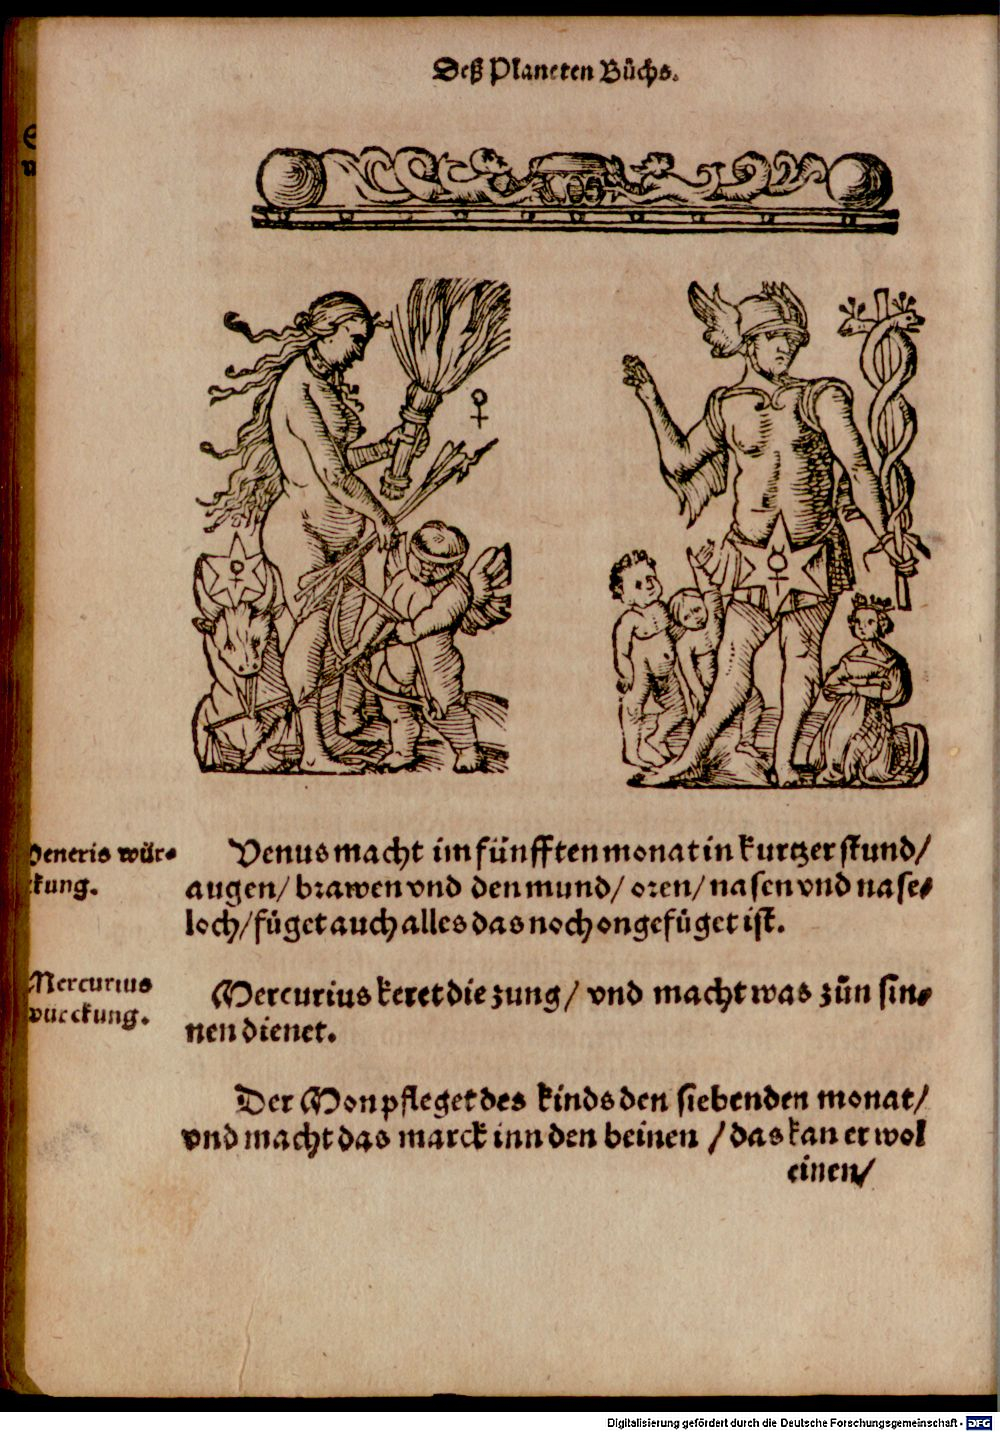 Deß Planeten Bůchs.
♀
♀
☿
Veneris wür⸗
ckung.
Venus macht im fünfften monat in kurtzer stund/
augen/ brawen vnd den mund/ oren/ nasen vnd nase⸗
loch/ füget auch alles das noch ongefüget ist.
Mercurius
würckung.
Mercurius keret die zung/ vnd macht was zůn sin⸗
nen dienet.
Der Mon pfleget des kinds den siebenden monat/
vnd macht das marck inn den beinen / das kan er wol
einen/
Digitalisierung gefördert durch die Deutsche Forschungsgemeinschaft - DFG